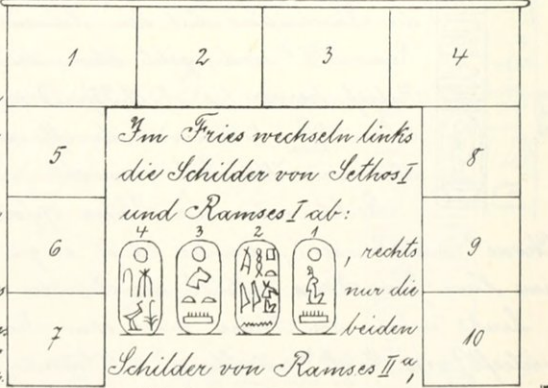 1 2 3 4
5
6
7
8
9
10
Im Fries wechseln links
die Schilder von Sethos I
und Ramses I ab:
4 3 2 1
, rechts
nur die
beiden
Schilder von Ramses IIa,